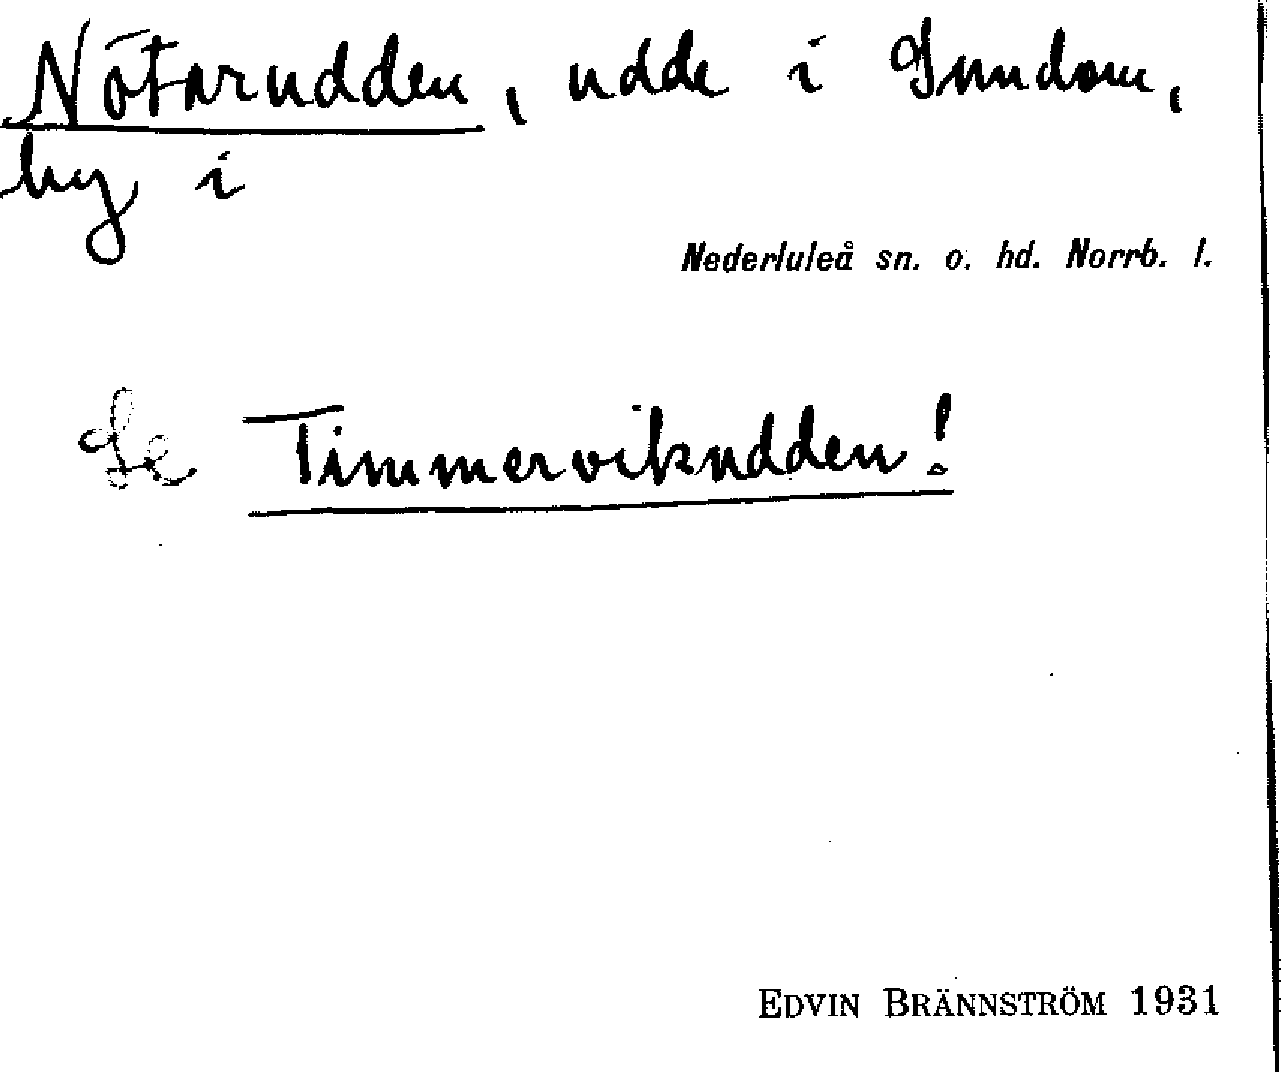 Nötarudden, udde i Sundom,
by i
Nederluleå sn. o. hd. Norrb. l.
Se Timmervikudden!
EDVIN BRÄNNSTRÖM 1931